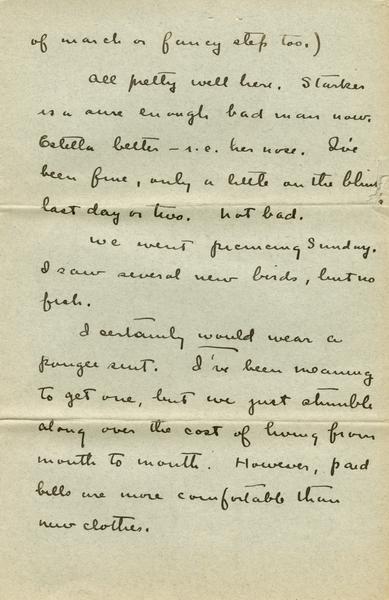 of march or fancy step too.)
All pretty well here. Starker
is a sure enough bad man now.
Estella better - i.e. her nose. I've
been fine, only a little on the blink
last day or two. Not bad.
We went picnicing Sunday.
I saw several new birds, but no
fish.
I certainly would wear a
pongee suit. I've been meaning
to get one, but we just stumble
along over the cost of living from
month to month. However, paid
bills are more comfortable than
new clothes.